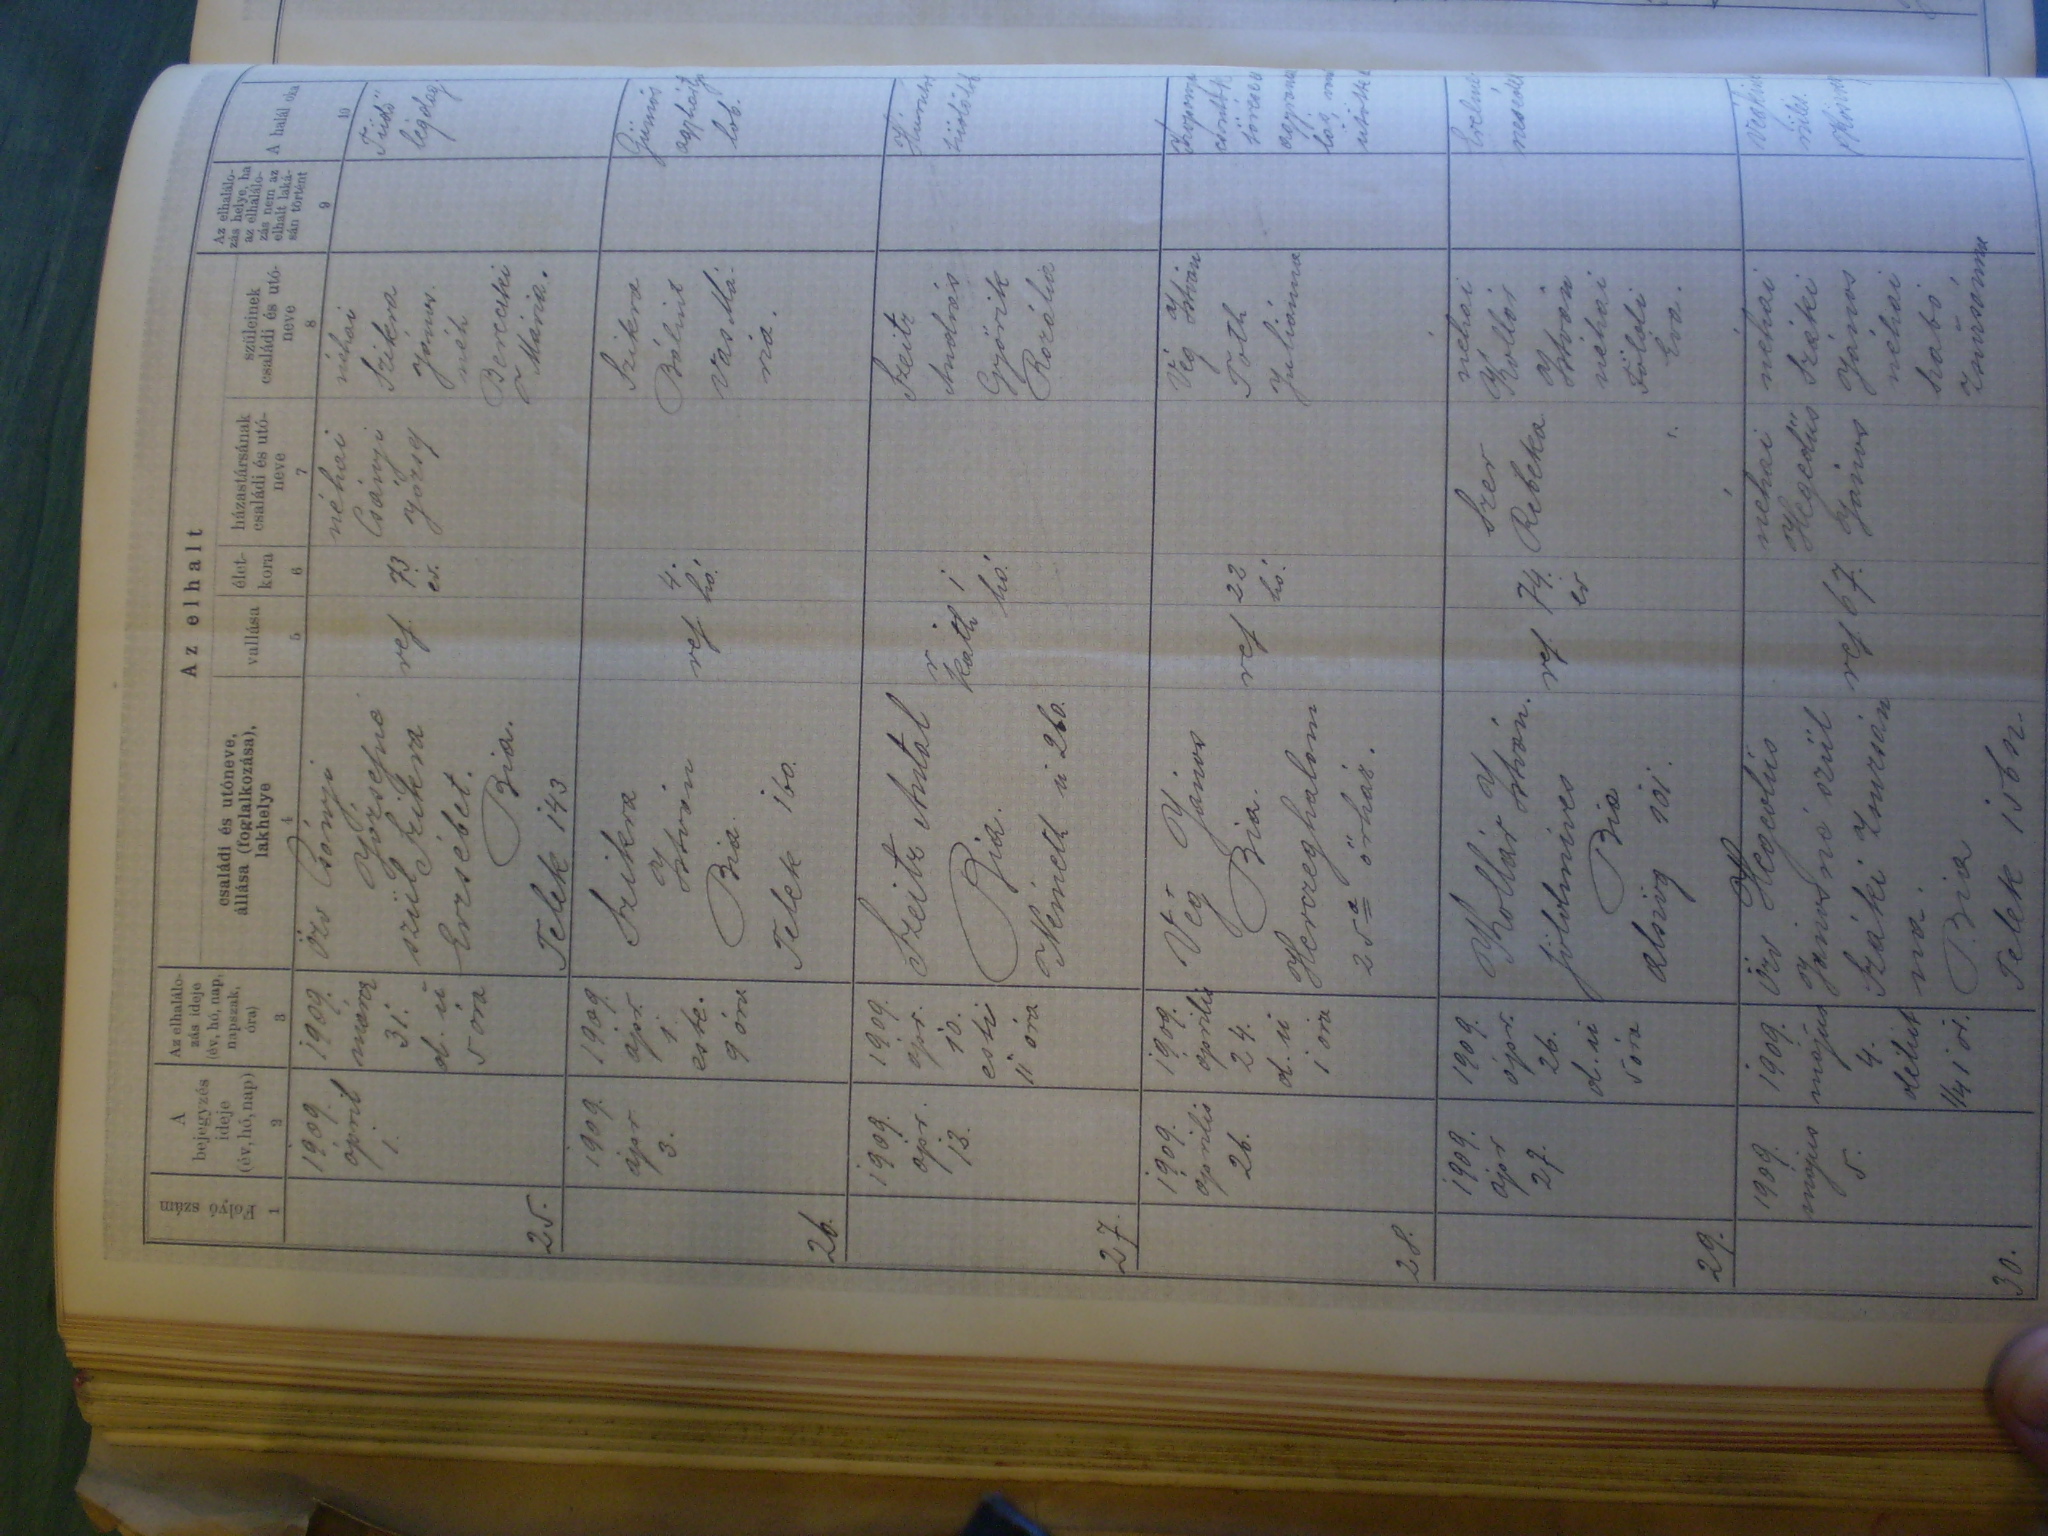 Az elhalt
Folyó szám
A bejegyzés ideje (év, hó, nap)
Az elhalálo-
zás ideje
(év, hó, nap,
napszak,
óra)
családi és utóneve,
állása (foglalkozása),
lakhelye
vallása
élet-
kora
házastársának
családi és utó-
neve
szüleinek
családi és utó-
neve
Az elhalálo-
zás helye, ha
az elhalálo-
zás nem az
elhalt laká-
sán történt
A halál oka
1
2
3
4
5
6
7
8
9
10
25.
1909.
april
1.
1909.
márc
31.
d. u
5 óra
özv Csányi
Józsefné
szül Szikra
Erzsébet.
Bia.
Telek 143
ref.
73
év.
néhai
Csányi
József
néhai
Szikra
János.
néh
Bereczki
Mária.
Tüdő
légdag
26.
1909.
ápr
3.
1909.
ápr
1.
este.
9 óra
Szikra
István
Bia.
Telek 160.
ref
4.
hó.
Szikra
Bálint
Vas Má-
ria.
Gümős
agyhárty
lob.
27.
1909.
ápr.
13.
1909.
ápr.
10.
esti
11 óra
Szeitz Antal
Bia.
Németh u 260.
r
kath
1
hó.
Szeitz
András
Győrik
Rozália
28.
1909.
április
26.
1909.
április
24.
d. u
1 óra
Vég János
Bia.
Herczeghalom
25=a őrház.
ref
23
hó.
Vég István
Tóth
Juliánna
29.
1909.
ápr
27.
1909.
ápr.
26.
d. u
5 óra
Kollár István.
földmíves
Bia
alszög 101.
ref.
74.
év
Szer
Rebeka
néhai
Kollár
István
néhai
Földi
Éva.
30.
1909.
május
5.
1909.
május
4.
délut
1/4 1 ór.
Özv Hegedüs
Jánosné szül
Száki Zsuzsán
na.
Bia
Telek 156 n.
ref
67.
néhai
Hegedüs
János
néhai
Száki
János
néhai
Szabó
Zsuzsánna